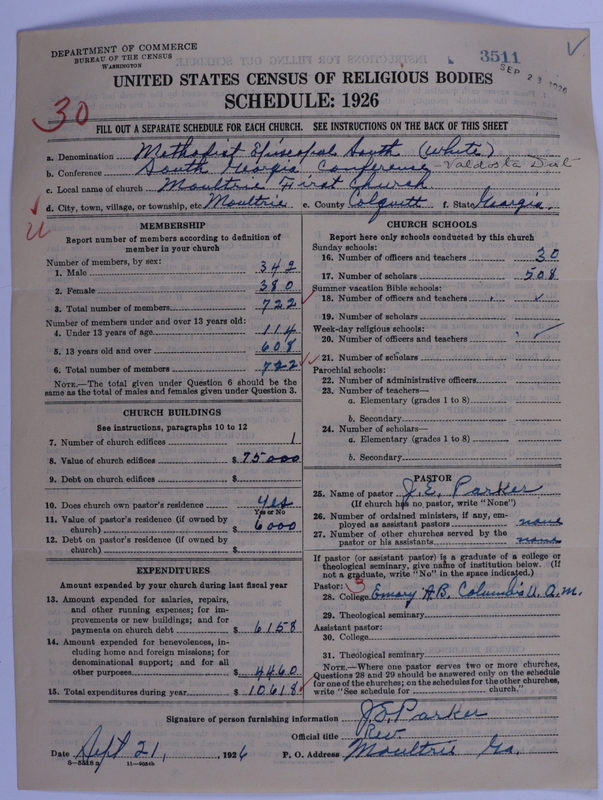 DEPARTMENT OF COMMERCE
BUREAU OF THE CENSUS
WASHINGTON
3511
SEP 23 1926
30
UNITED STATES CENSUS OF RELIGIOUS BODIES
SCHEDULE: 1926
FILL OUT A SEPARATE SCHEDULE FOR EACH CHURCH. SEE INSTRUCTIONS ON THE BACK OF THIS SHEET
a. Denomination Methodist Episcopal South (White)
b. Conference South Georgia Conference - Valdosta Dist
c. Local name of church Moultrie First Church
d. City, town, village, or township, etc Moultrie e. County Colquitt f. State Georgia.
MEMBERSHIP
Report number of members according to definition of
member in your church
Number of members, by sex:
1. Male 342
2. Female 380
3. Total number of members 722
Number of members under and over 13 years old:
4. Under 13 years of age 114
5. 13 years old and over 608
6. Total number of members 722
NOTE.—The total given under Question 6 should be
same as the total of males and females given under Question 3.
CHURCH BUILDINGS
See instructions, paragraphs 10 to 12
7. Number of church edifices 1
8. Value of church edifices $ 75000
9. Debt on church edifices $
10. Does church own pastor's residence Yes
Yes or No
11. Value of pastor's residence (if owned by
church) $ 6000
12. Debt on pastor's residence (if owned by
church) $
EXPENDITURES
Amount expended by your church during last fiscal year
13. Amount expended for salaries, repairs,
and other running expences; for im-
provements or new buildings; and for
payments on church debt $ 6158
14. Amount expended for benevolences, in-
cluding home and foreign missions; for
denominational support; and for all
other purposes $ 4460
15. Total expenditures during year $ 10618
CHURCH SCHOOLS
Report here only schools conducted by this church
Sunday schools:
16. Number of officers and teachers 30
17. Number of scholars 508
Summer vacation Bible schools:
18. Number of officers and teachers
19. Number of scholars
Week-day religious schools:
20. Number of officers and teachers
21. Number of scholars
Parochial schools:
22. Number of administrative officers
23. Number of teachers—
a. Elementary (grades 1 to 8)
b. Secondary
24. Number of scholars—
a. Elementary (grades 1 to 8)
b. Secondary
PASTOR
25. Name of pastor J.E. Parker
(If church has no pastor, write "None")
26. Number of ordained ministers, if any, em-
ployed as assistant pastors none
27. Number of other churches served by the
pastor or his assistants none
If pastor (or assistant pastor) is a graduate of a college or
theological seminary, give name of institution below. (If
not a graduate, write "No" in the space indicated.)
Pastor: 3
28. College Emory A.B. Columbia U. A.M.
29. Theological seminary
Assistant pastor:
30. College
31. Theological seminary
NOTE.—Where one pastor serves two or more churches,
Questions 28 and 29 should be answered only on the schedule
for one of the churches; on the schedules for the other churches,
write "See schedule for church."
Signature of person furnishing information J.E. Parker
Official title Rev.
Date Sept 21, 1926 P. O. Address Moultrie Ga.